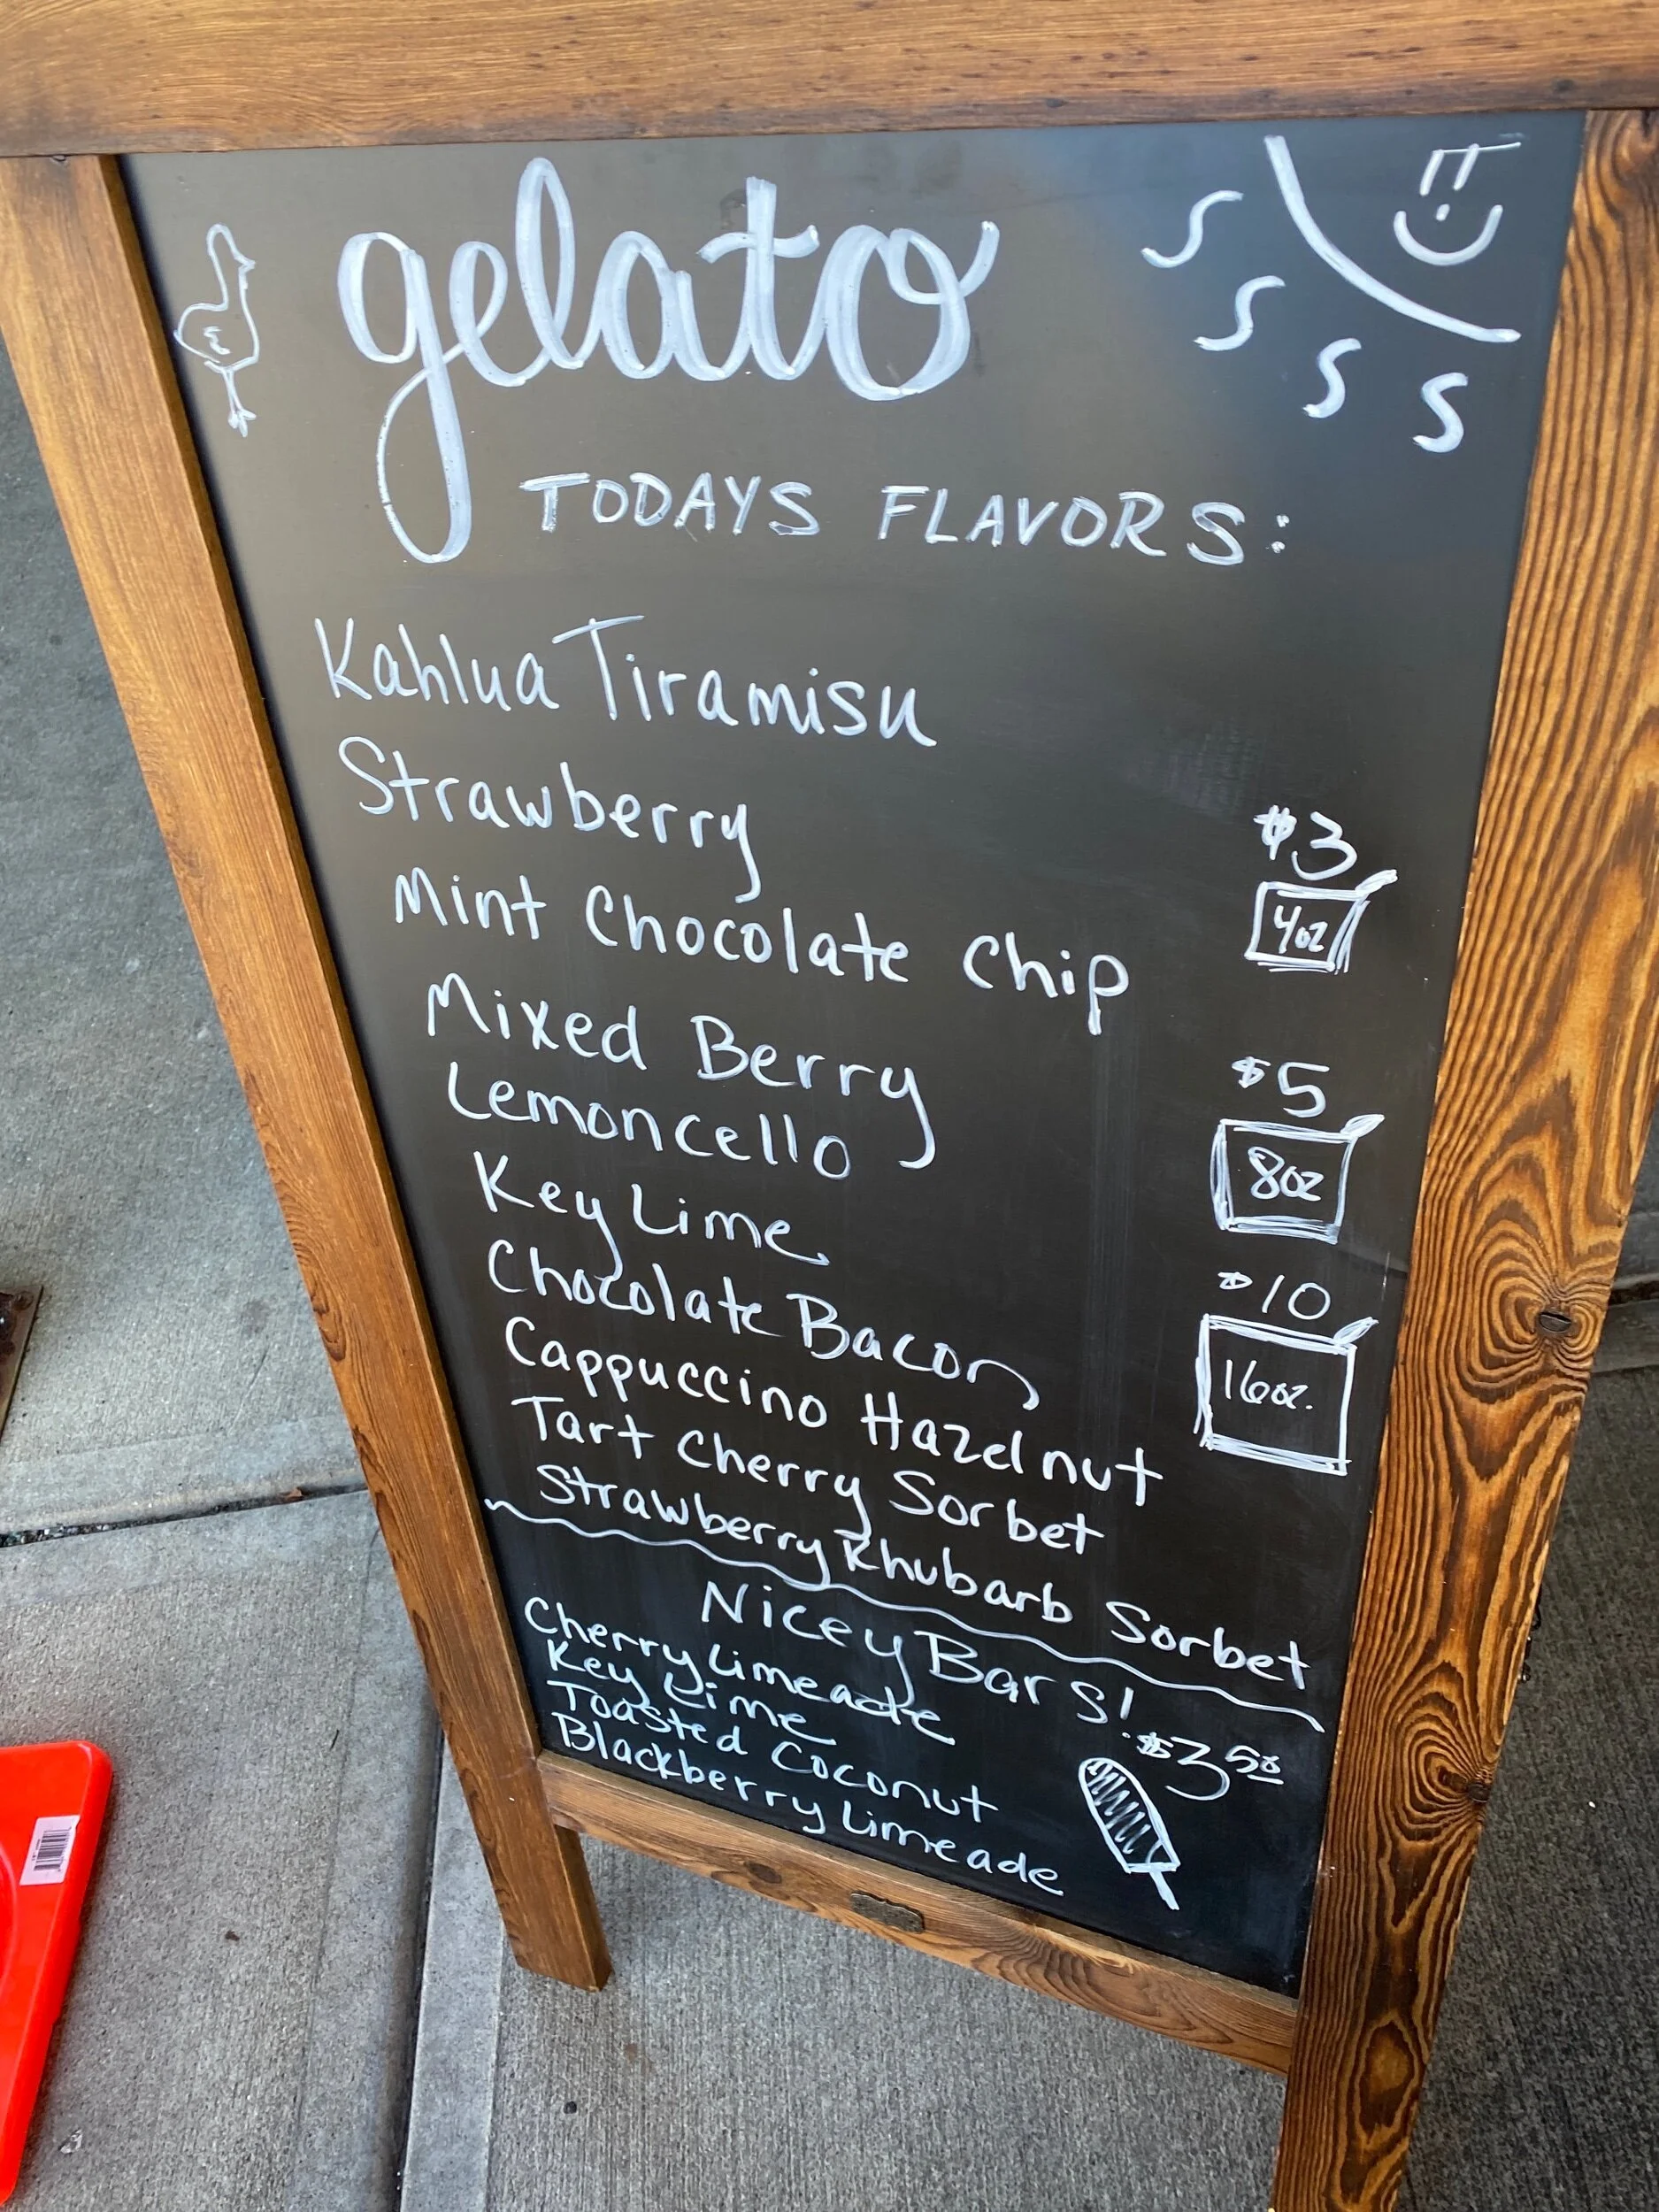 gelato
TODAYS FLAVORS:
Kahlua Tiramisu
Strawberry
Mint Chocolate Chip
Mixed Berry
Lemoncello
Key Lime
Chocolate Bacon
Cappuccino Hazelnut
Tart Cherry Sorbet
Strawberry Rhubarb Sorbet
$3
4oz
$5
8oz
$10
16oz.
Nicey Bars!
$3.50
Cherry Limeade
Key Lime
Toasted Coconut
Blackberry Limeade